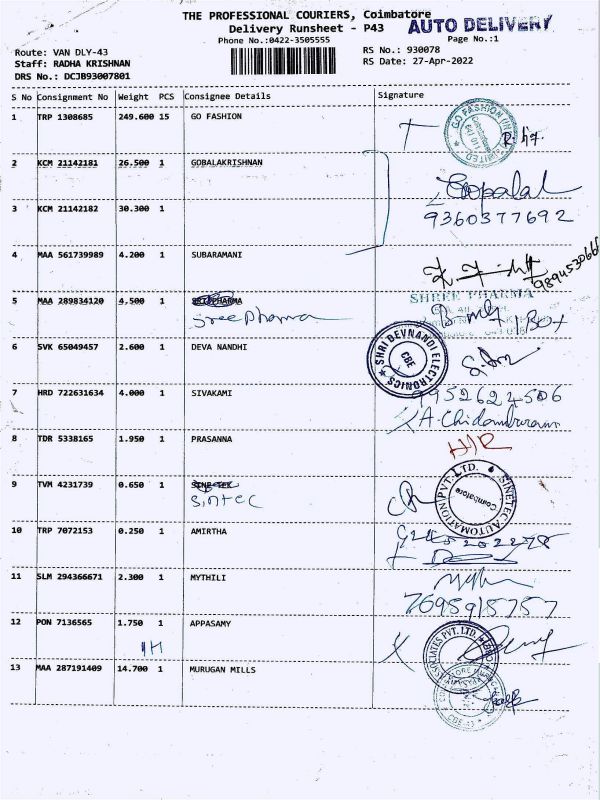 THE PROFESSIONAL COURIERS, Coimbatore
Delivery Runsheet - P43
AUTO DELIVERY
Phone No.:0422-3505555
Page No.:1
Route: VAN DLY-43
RS No.: 930078
Staff: RADHA KRISHNAN
RS Date: 27-Apr-2022
DRS No.: DCJB93007801
S No Consignment No Weight PCS Consignee Details Signature
1 TRP 1308685 249.600 15 GO FASHION
2 KCM 21142181 26.500 1 GOBALAKRISHNAN
Gopalal
9360377692
3 KCM 21142182 30.300 1
4 MAA 561739989 4.200 1 SUBARAMANI
5 MAA 289834120 4.500 1 SRI PHARMA
Sree Pharma
SHREE PHARMA
1 Box
6 SVK 65049457 2.600 1 DEVA NANDHI
SHRI DEVNANDI ELECTRONICS
CBE
7 HRD 722631634 4.000 1 SIVAKAMI
9952624506
A. Chidambaram
8 TDR 5338165 1.950 1 PRASANNA
H/R
9 TVM 4231739 0.650 1
Sintec
SINETEC AUTOMATION PVT. LTD.
Coimbatore
10 TRP 7072153 0.250 1 AMIRTHA
11 SLM 294366671 2.300 1 MYTHILI
7695915757
12 PON 7136565 1.750 1 APPASAMY
13 MAA 287191409 14.700 1 MURUGAN MILLS